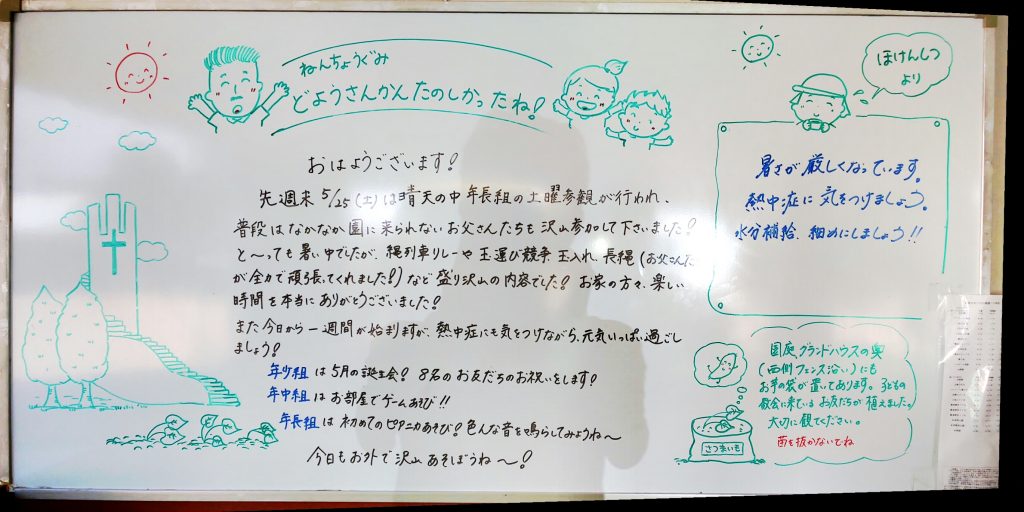 ねんちょうぐみ
どようさんかんたのしかったね!
おはようございます!
先週末 5/25(土)は晴天の中 年長組の土曜参観が行われ、
普段はなかなか園に来られないお父さんたちも沢山参加して下さいました!
と〜っても暑い中でしたが、縄列車リレーや玉運び競争 玉入れ、長縄(お父さんたち
が全力で頑張ってくれました!)など盛り沢山の内容でした! お家の方々、楽しい
時間を本当にありがとうございました!
また今日から一週間が始まりますが、熱中症にも気をつけながら、元気いっぱい過ごし
ましょう!
年少組は5月の誕生会! 8名のお友だちのお祝いをします!
年中組はお部屋でゲームあそび!!
年長組は初めてのピアニカあそび! 色んな音を鳴らしてみようね〜
今日もお外で沢山あそぼうね〜!
ほけんしつ
より
暑さが厳しくなっています。
熱中症に気をつけましょう。
水分補給、細めにしましょう!!
園庭、グランドハウスの奥
(西側フェンス沿い)にも
お芋の袋が置いてあります。子どもの
教会に来ているお友だちが植えました。
大切に観てください。
苗を抜かないでね
さつまいも